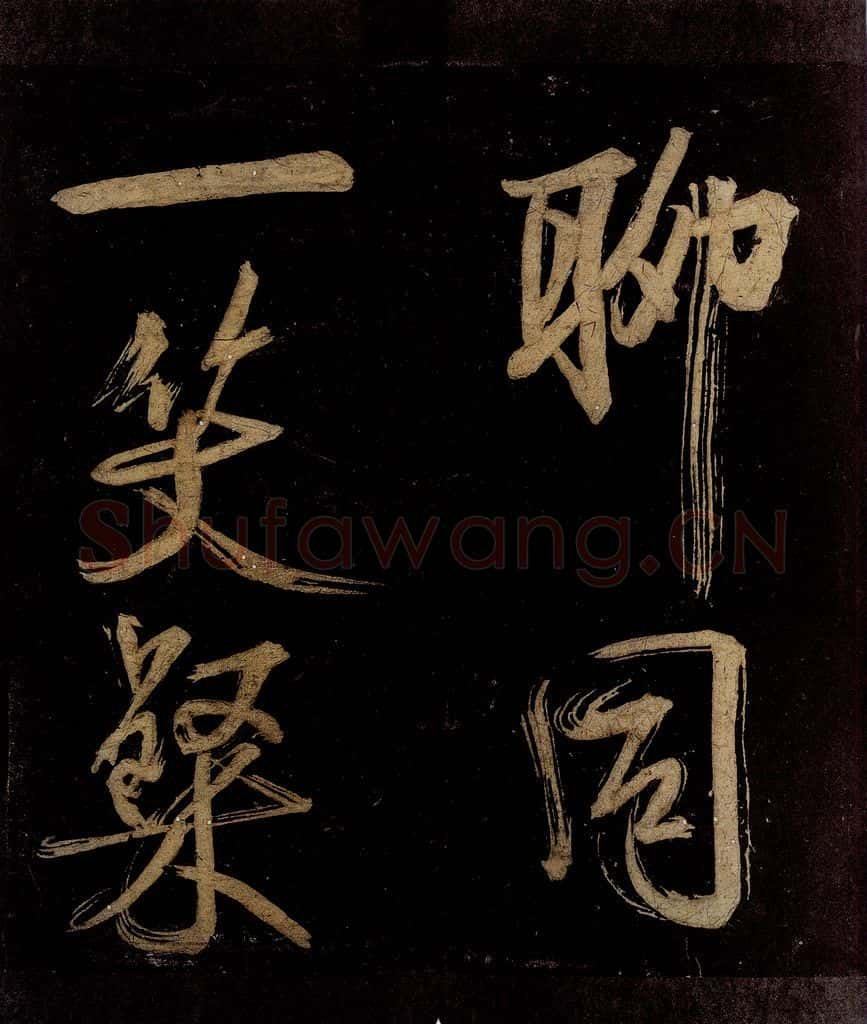 聊同
一笑粲
Shufawang.CN